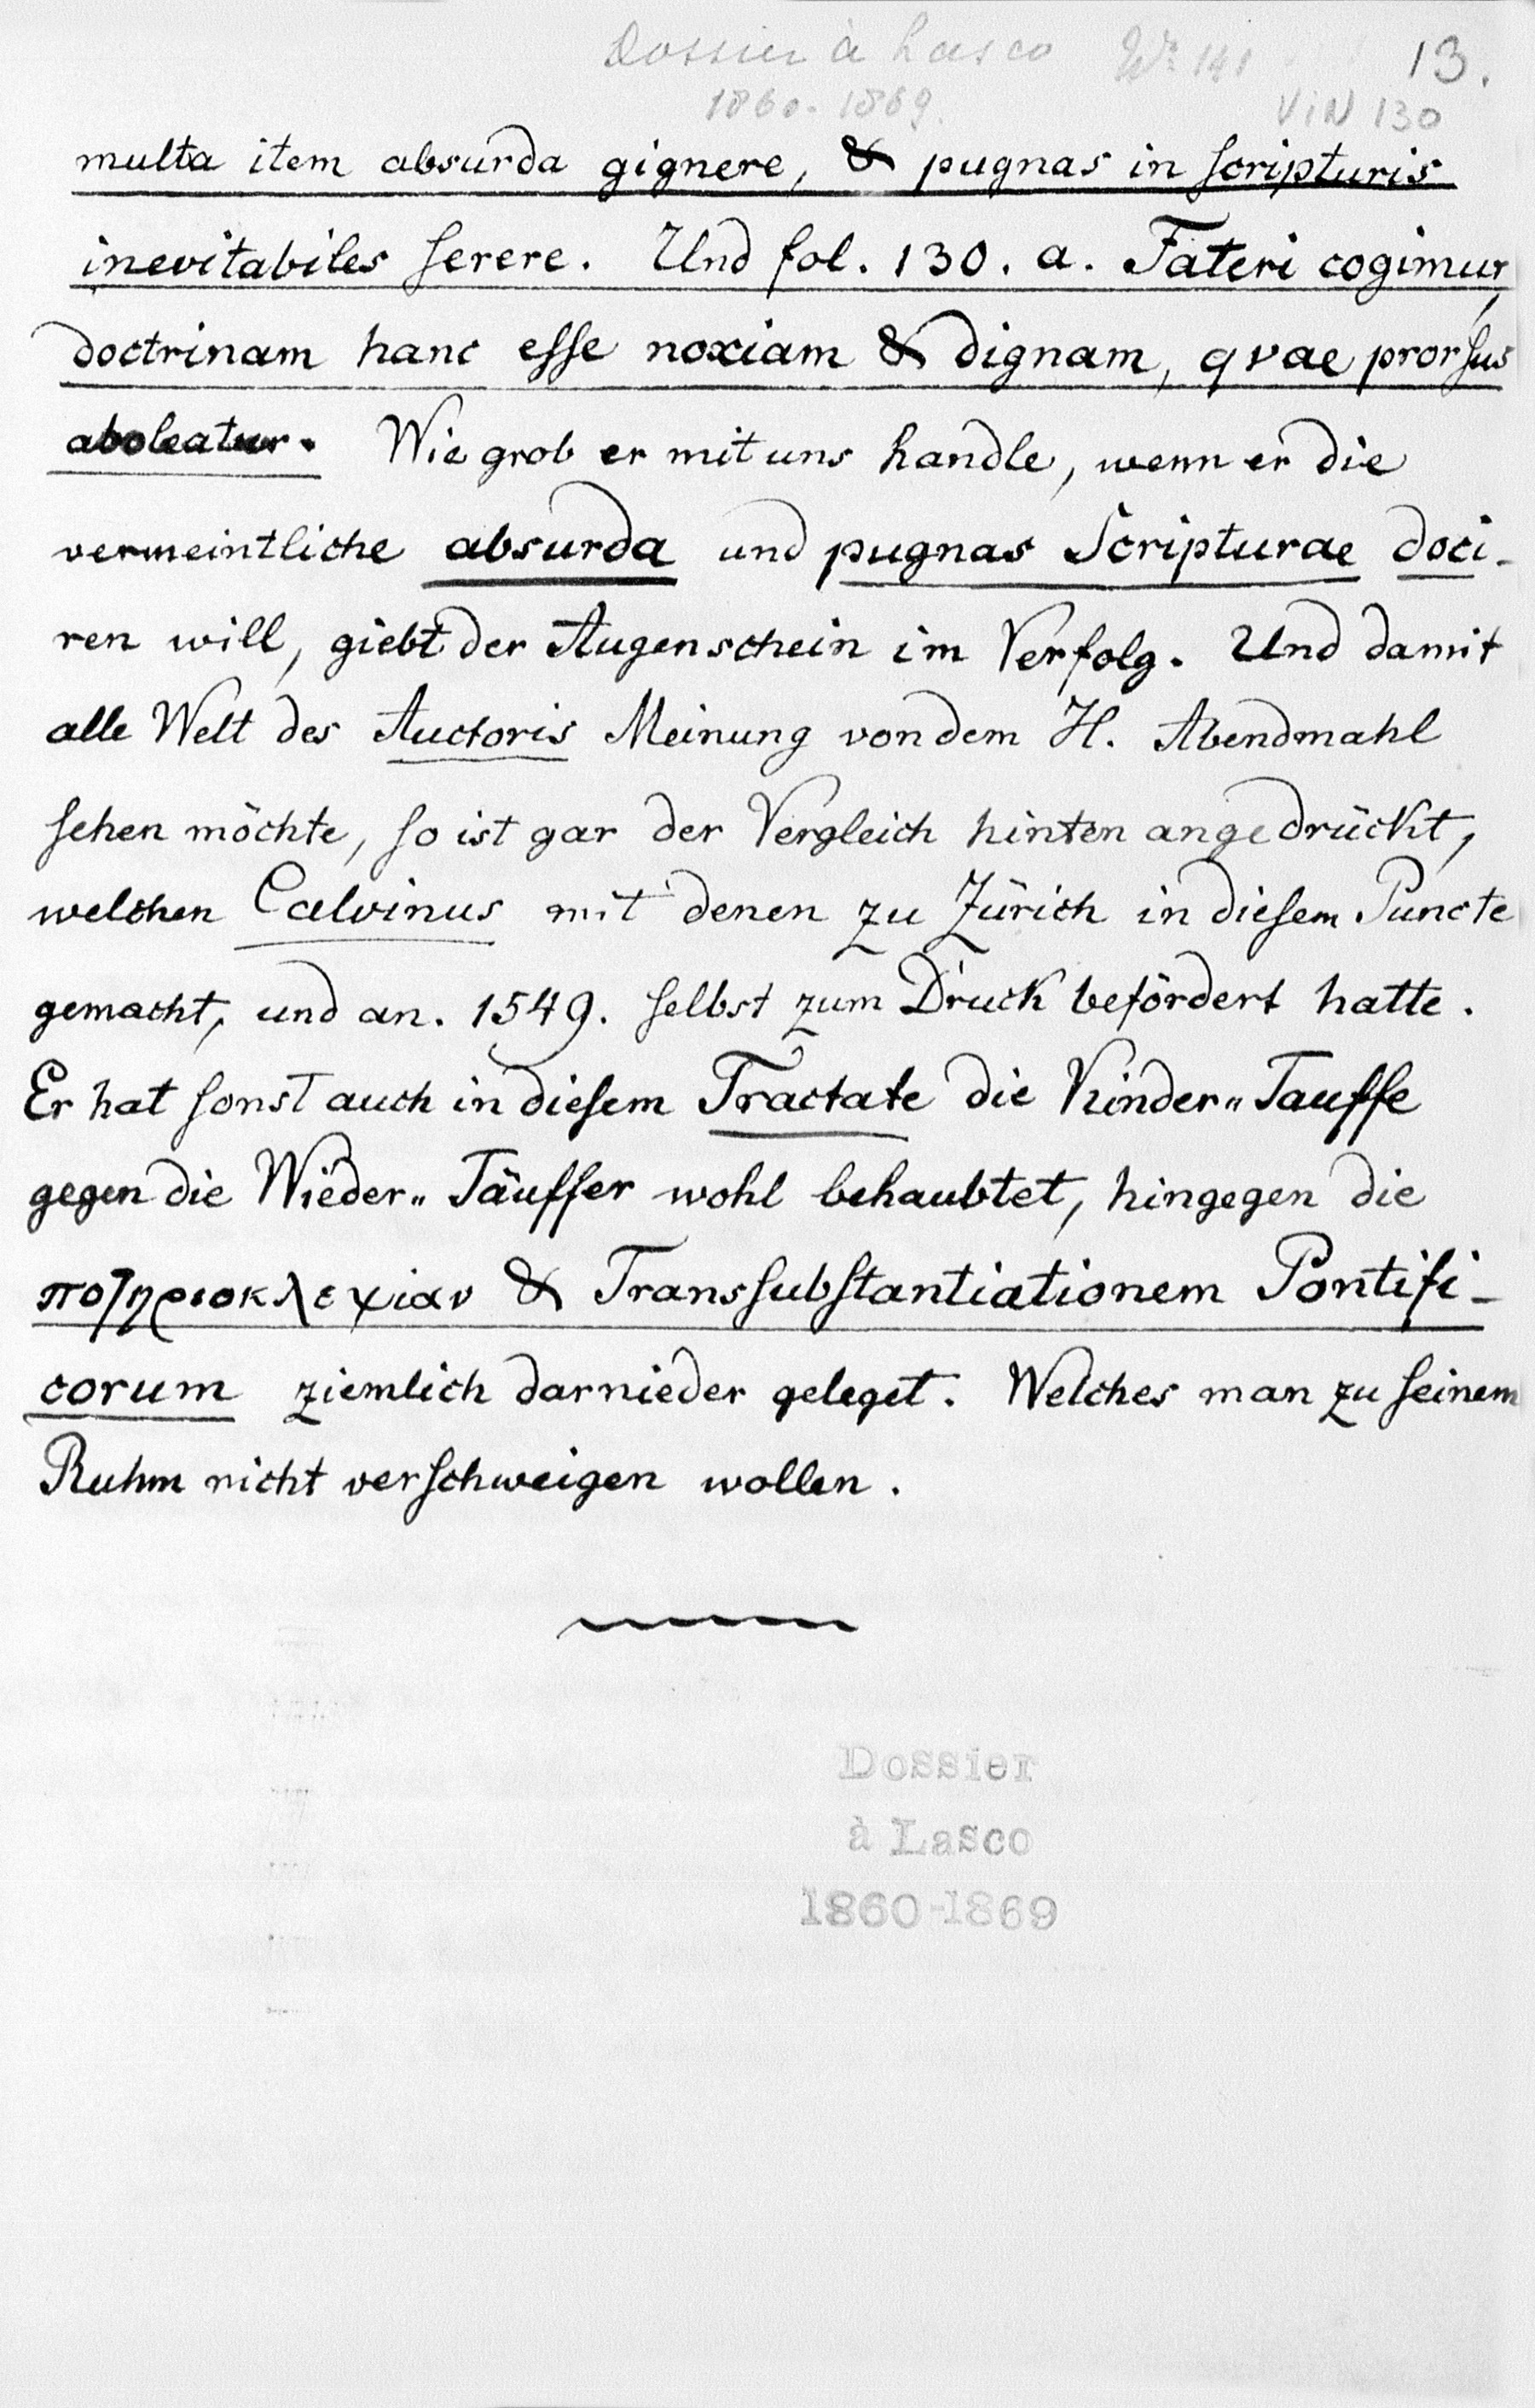 Dossier à Lasco No 141 13.
1860-1869. VIN 130
multa item absurda gignere, & pugnas in ſcripturis
inevitabiles ſerere. Und fol. 130. a. Fateri cogimur,
doctrinam hanc eſſe noxiam & dignam, qvae prorſus
aboleatur. Wie grob er mit uns handle, wenn er die
vermeintliche absurda und pugnas Scripturae doci-
ren will, giebt der Augenschein im Verfolg. Und damit
alle Welt des Auctoris Meinung von dem H. Abendmahl
ſehen möchte, ſo ist gar der Vergleich hinten angedrückt,
welchen Calvinus mit denen zu Zürich in dieſem Puncte
gemacht, und an. 1549. ſelbst zum Druck befördert hatte.
Er hat ſonst auch in dieſem Tractate die Kinder„Tauffe
gegen die Wieder„Täuffer wohl behaubtet, hingegen die
ποτηριοκλεψιαν & Transſubſtantiationem Pontifi-
corum ziemlich darnieder geleget. Welches man zu ſeinem
Ruhm nicht verſchweigen wollen.
Dossier
à Lasco
1860-1869